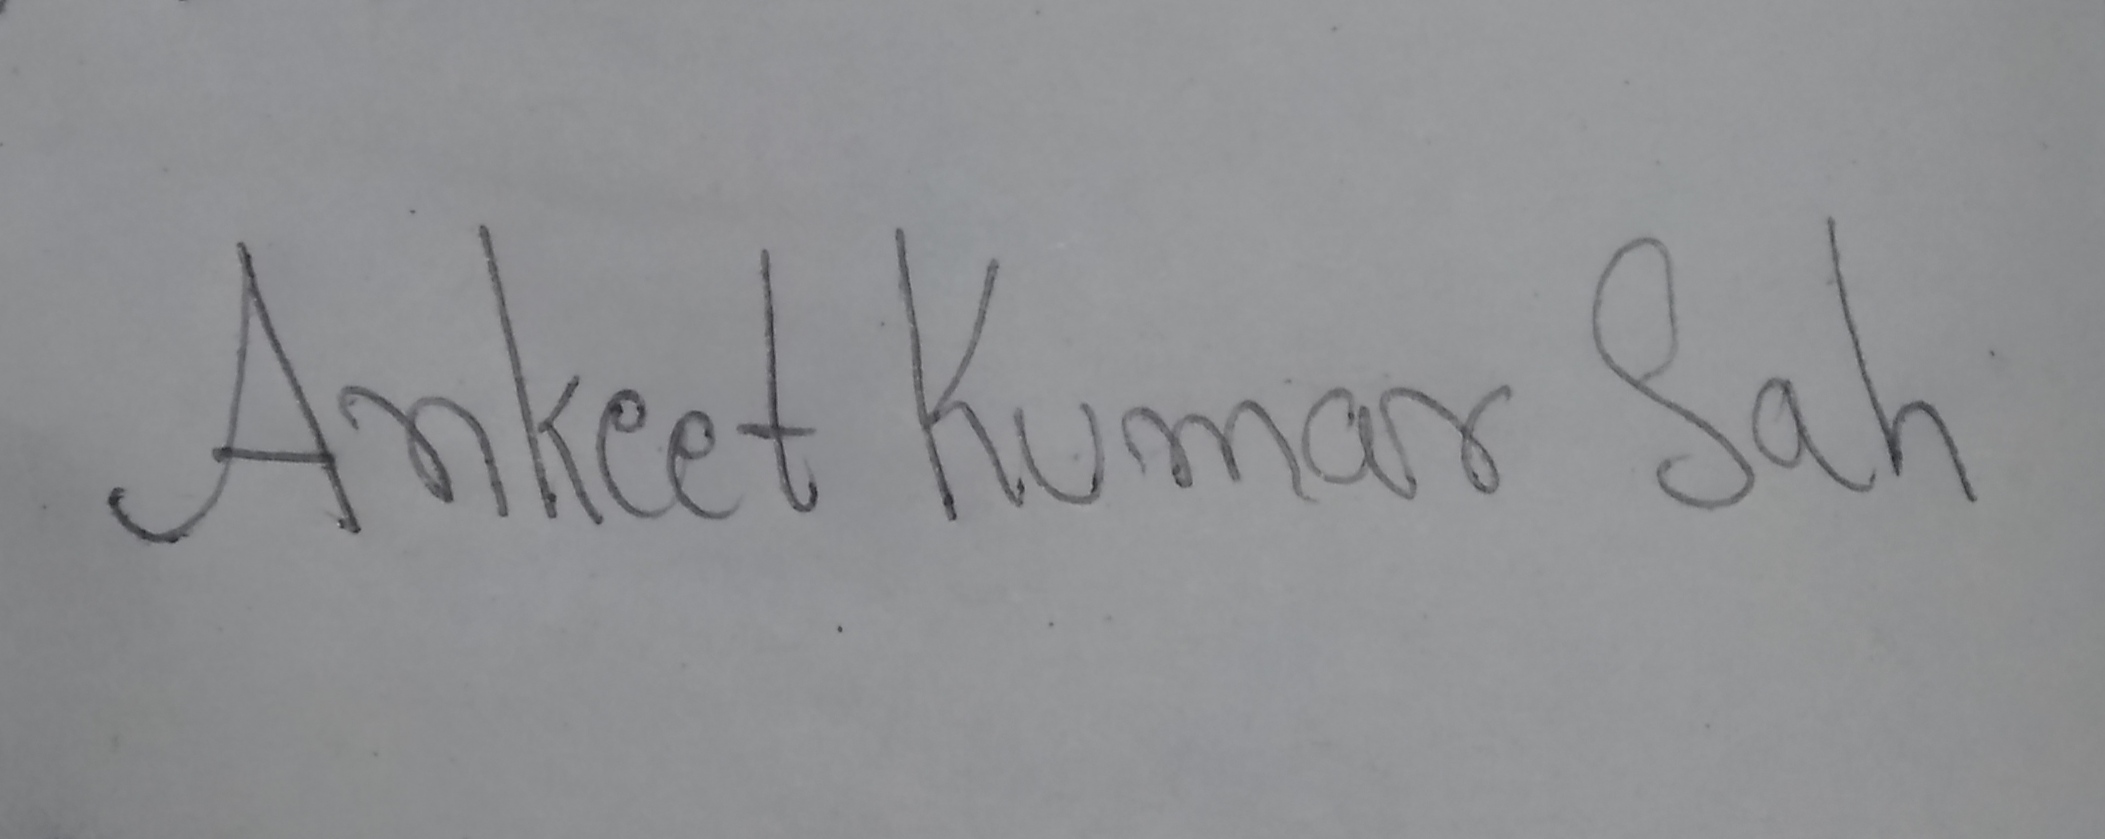 Ankeet Kumar Sah